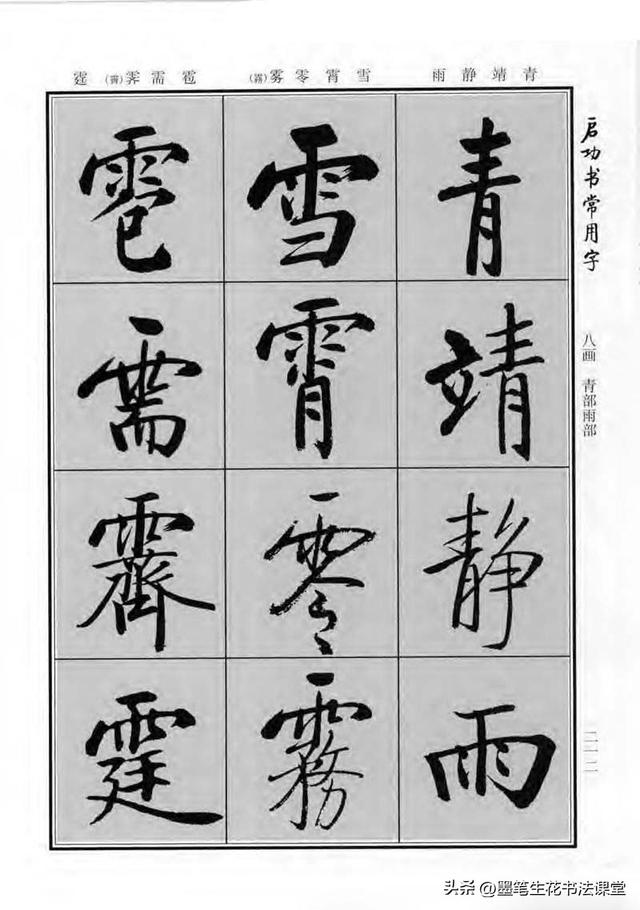 启功书常用字
八画 青部雨部
二一二
青靖静雨
雪霄零雾(霧)
雹需霁(霽)霆
青靖静雨
雪霄零霧
雹需霽霆
头条 @墨笔生花书法课堂